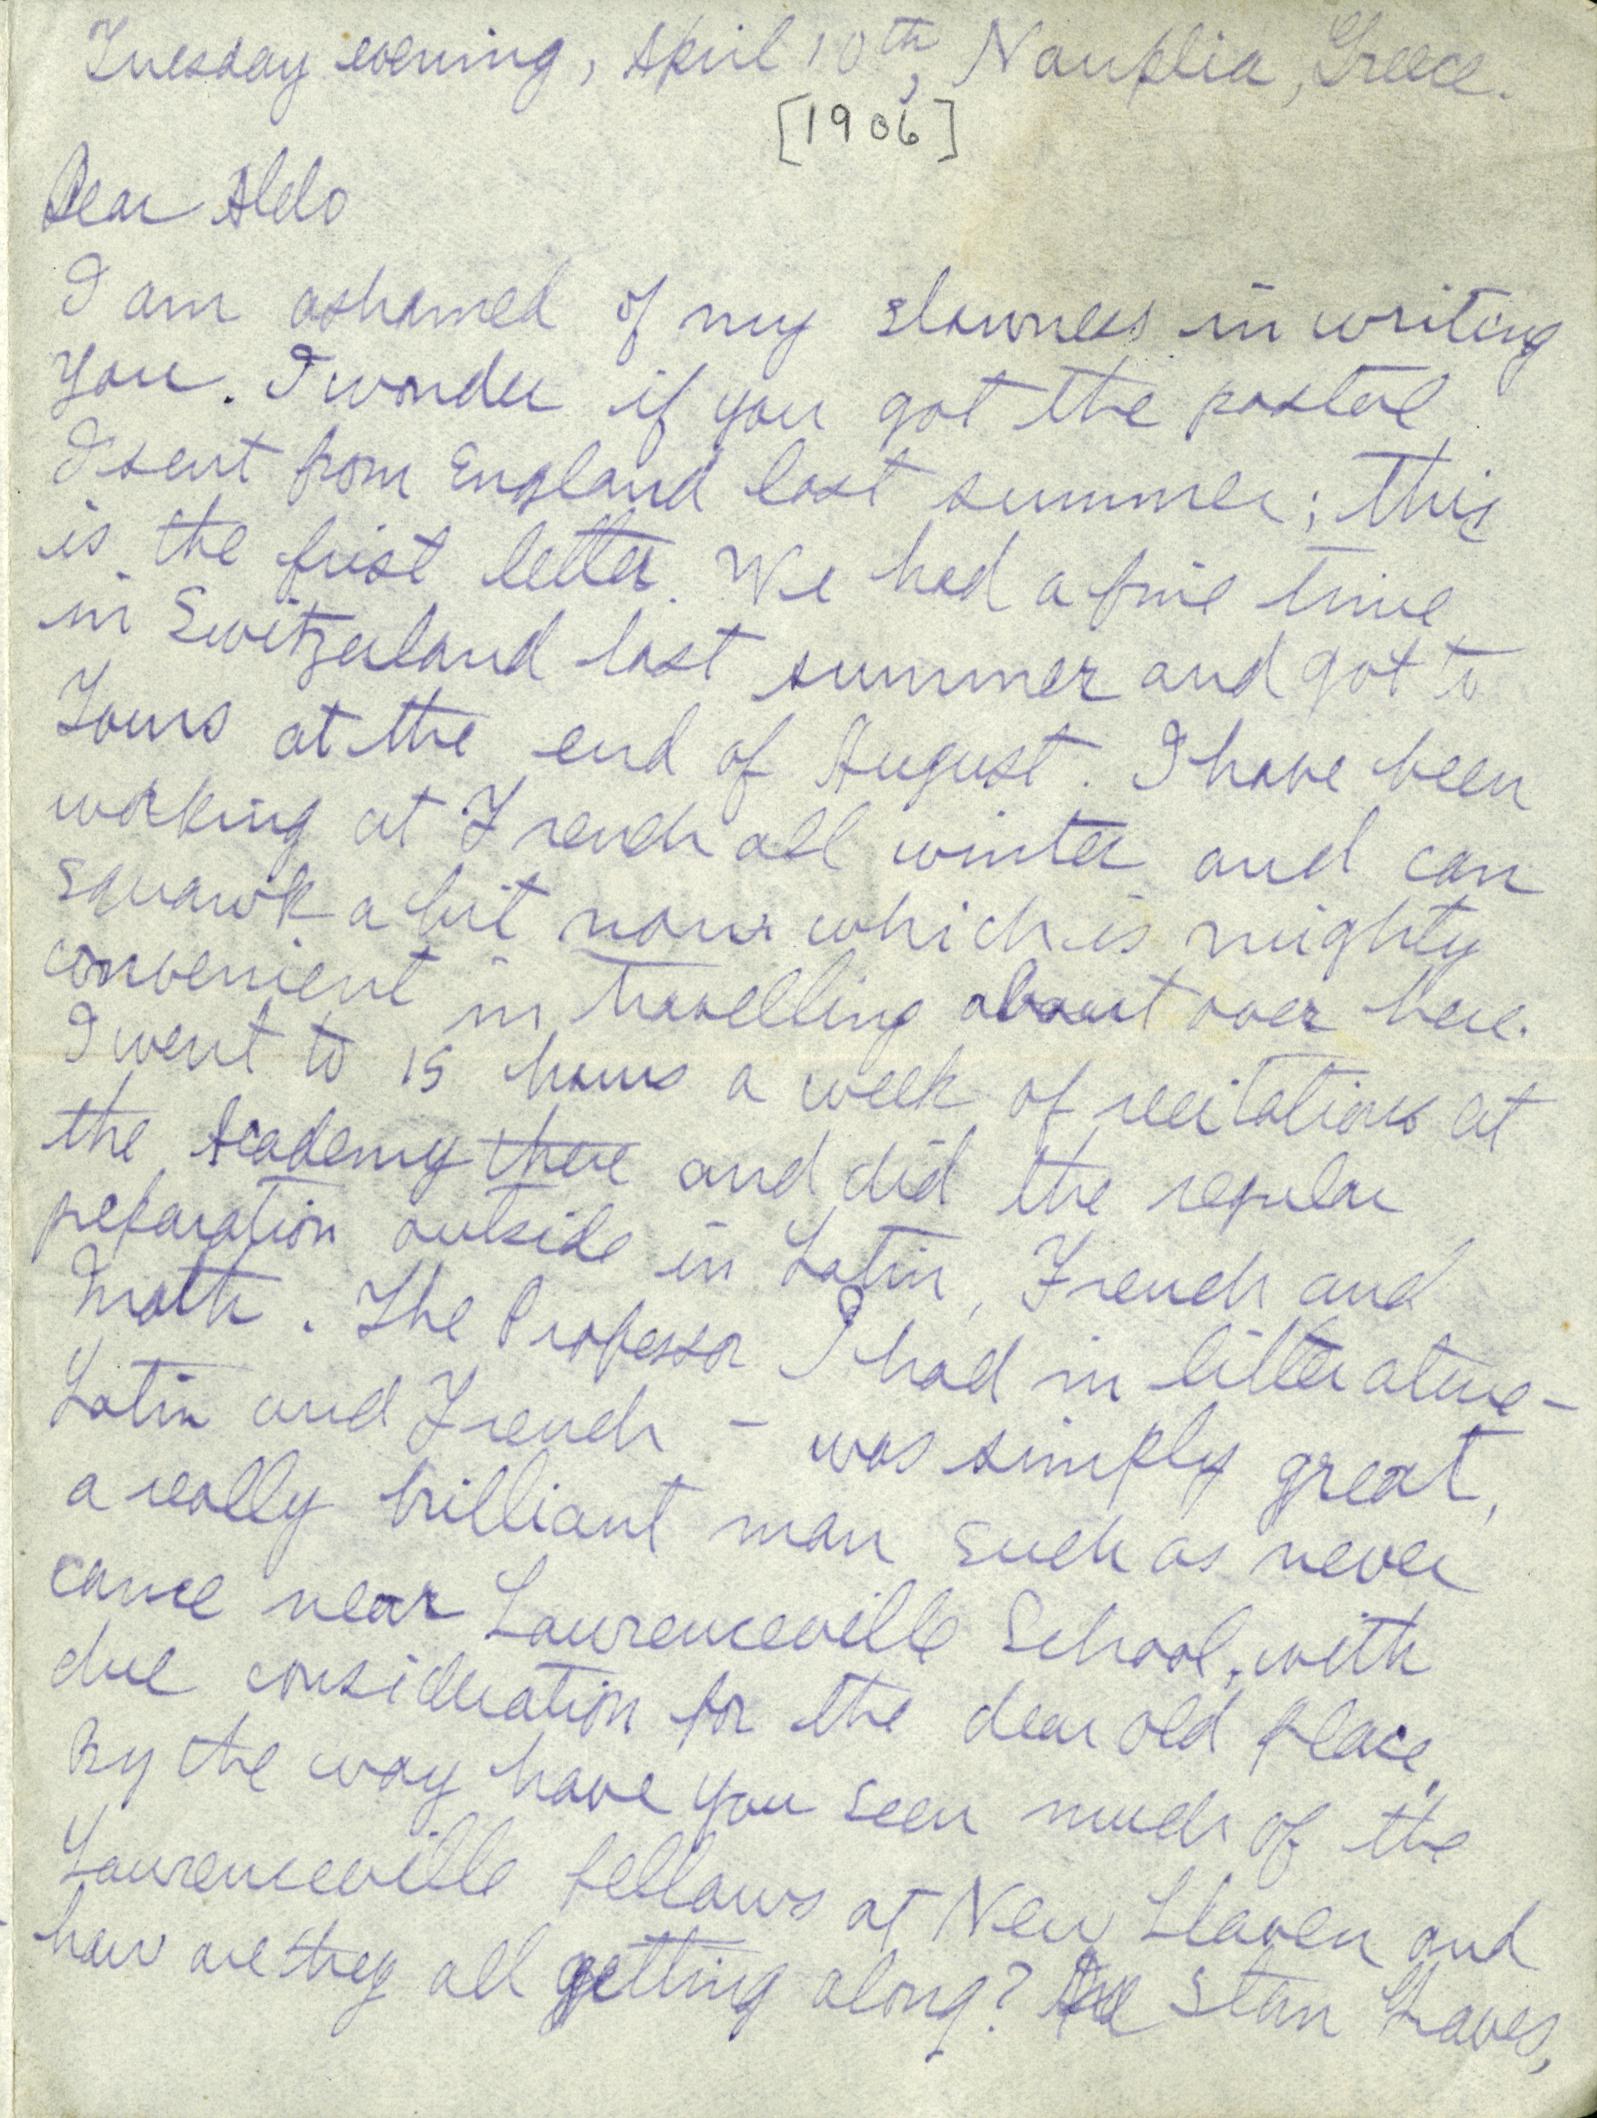 Tuesday evening, April 10th, Nauplia, Greece.
[1906]
Dear Aldo
I am ashamed of my slowness in writing
you. I wonder if you got the postal
I sent from England last summer; this
is the first letter. We had a fine time
in Switzerland last summer and got to
Tours at the end of August. I have been
working at French all winter and can
squawk a bit now which is mighty
convenient in travelling about over here.
I went to 15 hours a week of recitations at
the Academy there and did the regular
preparation outside in Latin, French and
Math. The Professor I had in litterature -
Latin and French - was simply great,
a really brilliant man such as never
came near Lawrenceville School, with
due consideration for the dear old place.
By the way have you seen much of the
Lawrenceville fellows at New Haven and
how are they all getting along? Stan Graves,